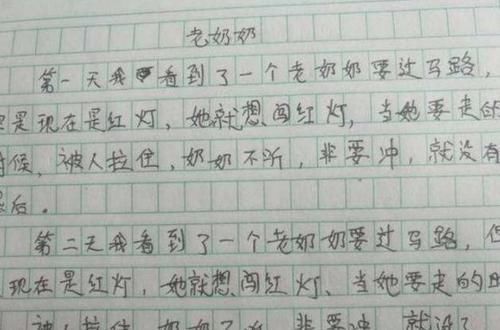 老奶奶
第一天我看到了一个老奶奶要过马路，
是现在是红灯，她就想闯红灯，当她要走的
时候，被人拉住，奶奶不听，非要冲，就没有
后。
第二天我看到了一个老奶奶要过马路，但
现在是红灯，她就想闯红灯、当她要走的
被人拉住 奶奶 非要冲 就没